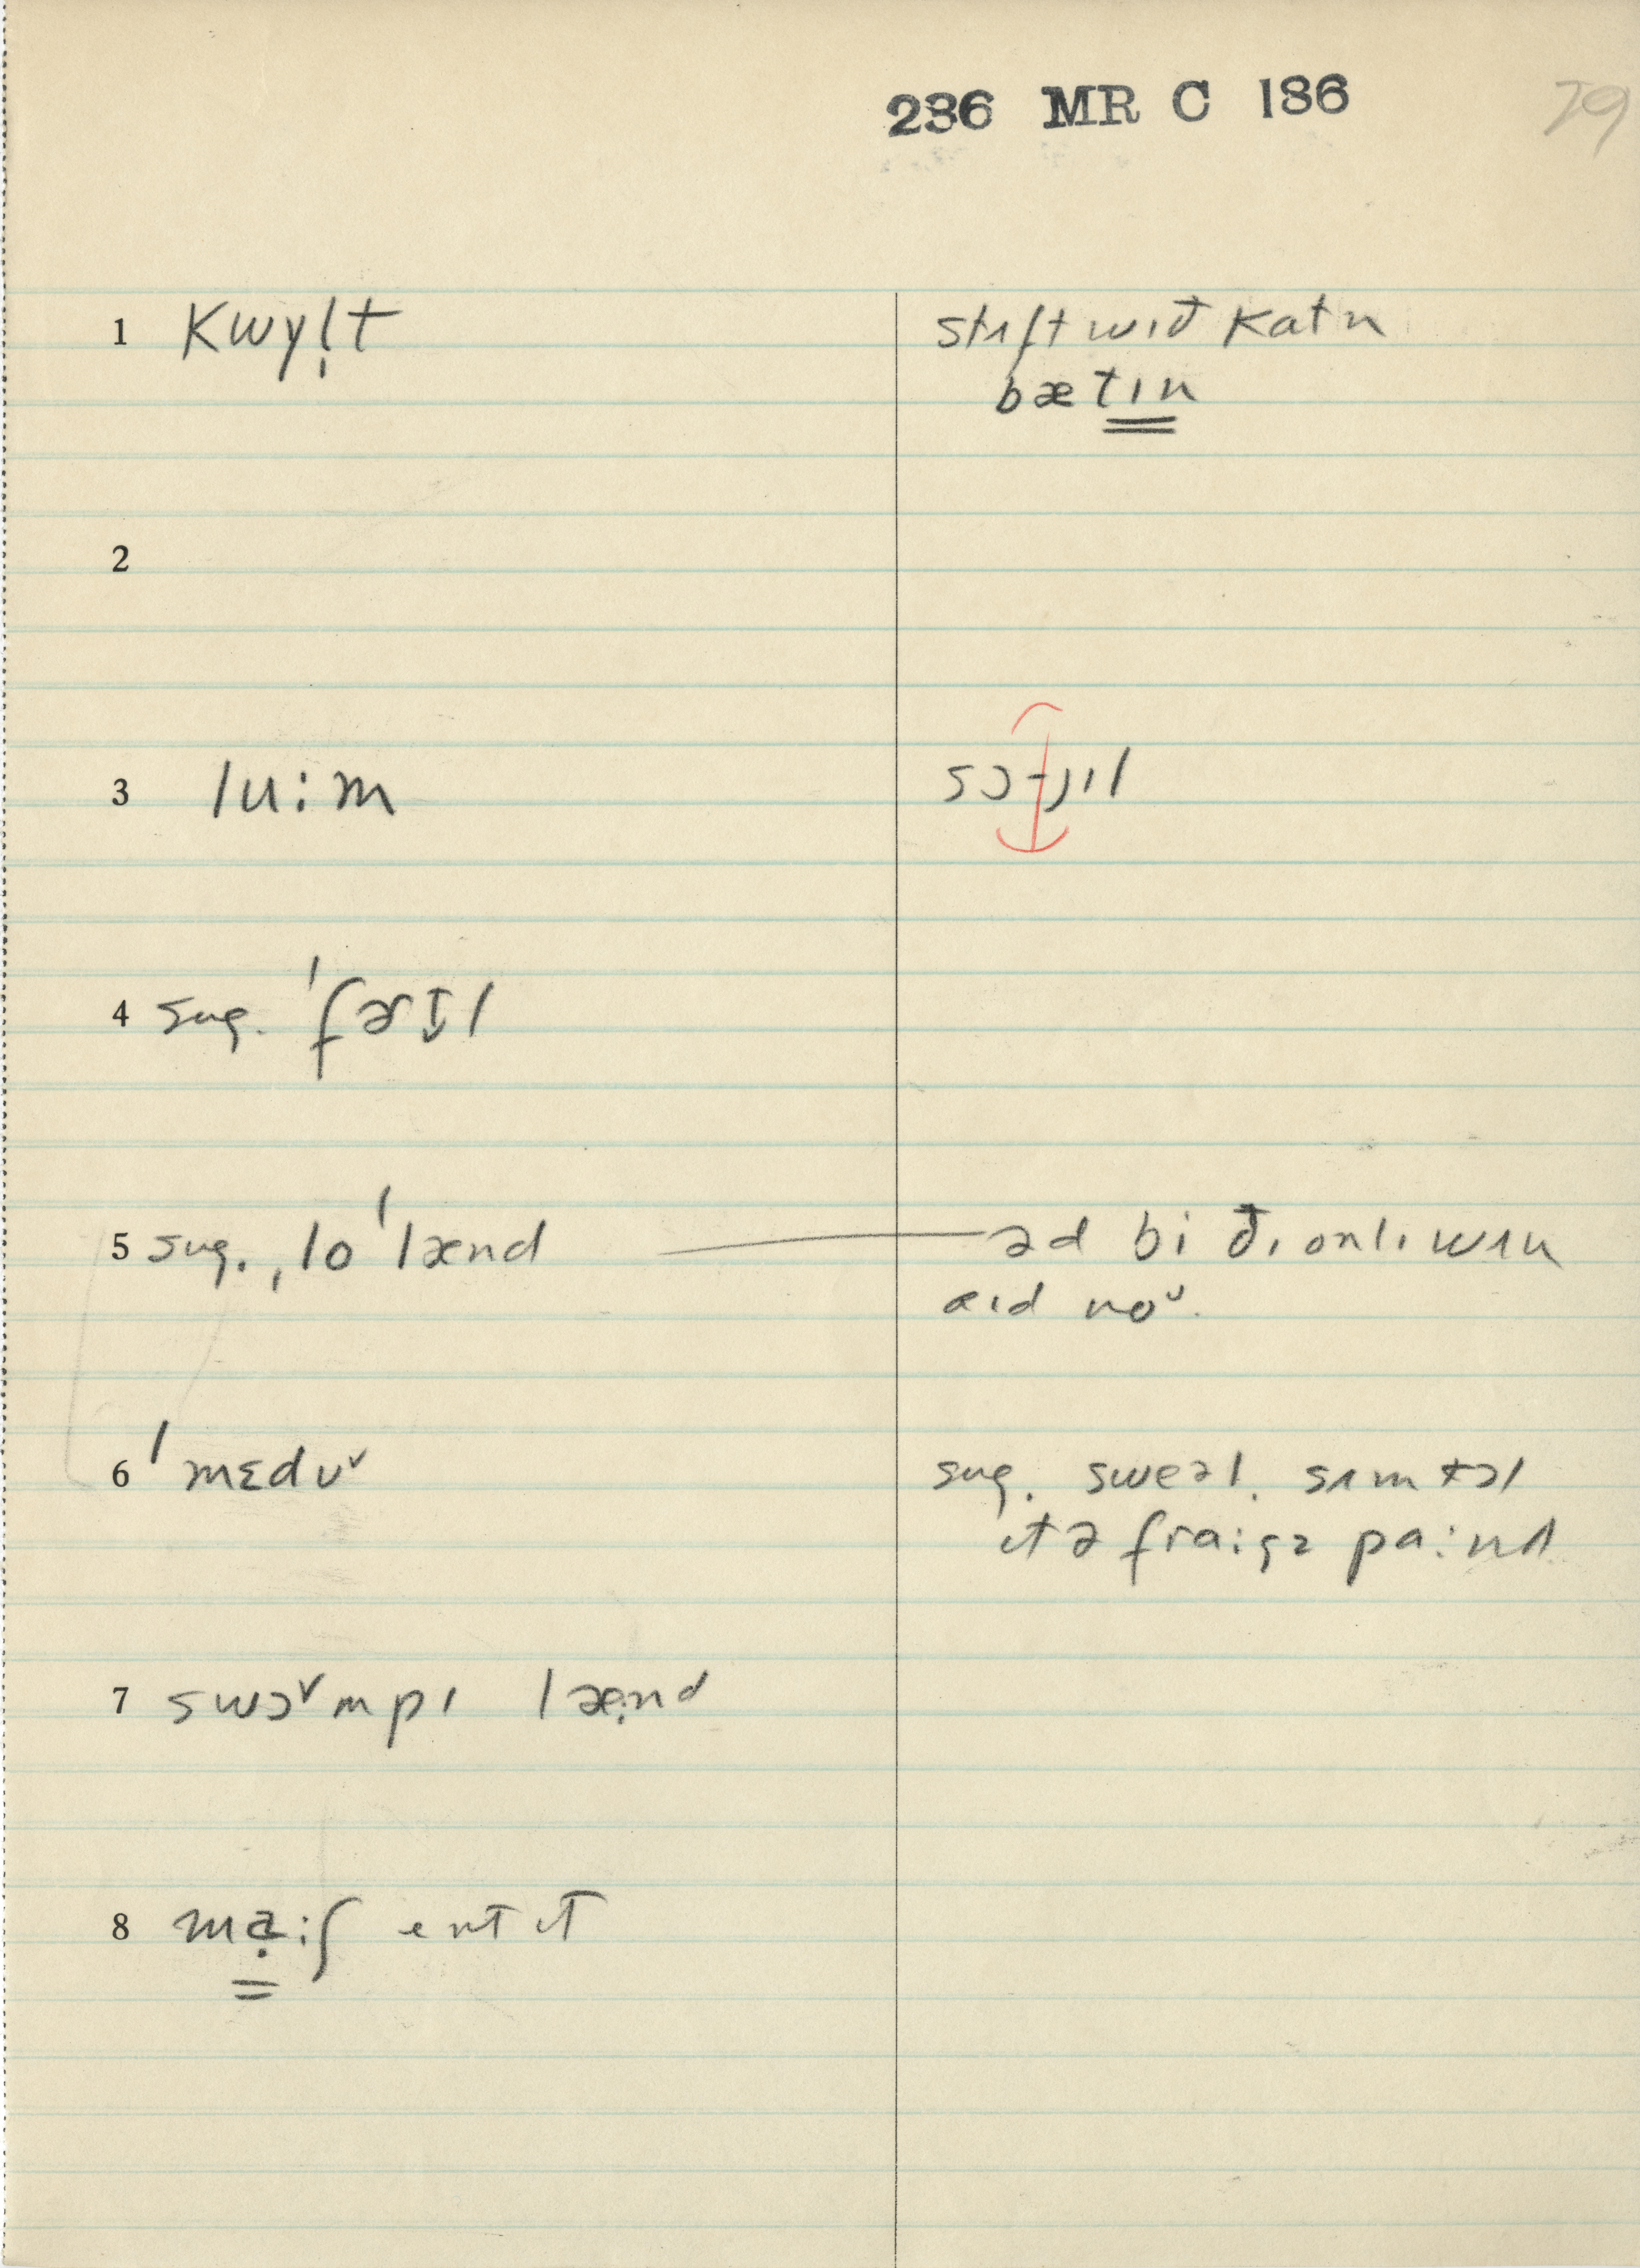 236 MR C 186
29
1 kwɣl̩t
stʌft wɪđ katn
bætɪn
2
3 lu:m
sɔɪl
4 sug. ˈfɚtɪ̬l
5 sug. ˌloˈlænd — əd bi đɪ onlɪ wʌn
aɪd noᵕ.
6 ˈmɛdʊ˅
sug. sweəl. sʌmtəl
ɪt ə
7 swɔ˅mpɪ læ̣nd
8 mạ:ʃ ent ɪt